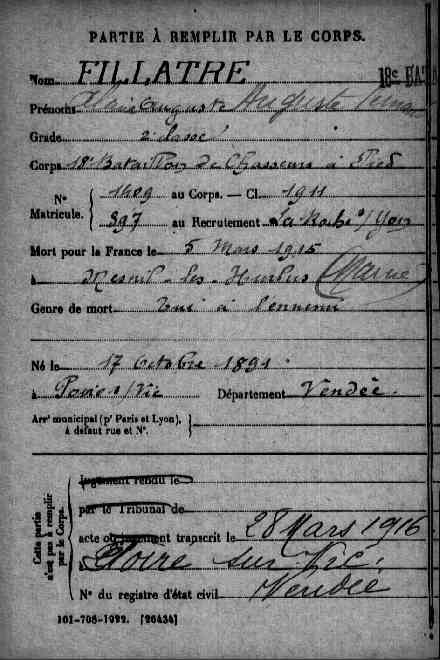 PARTIE À REMPLIR PAR LE CORPS.
Nom FILLATRE
18e BAT
Prénoms Auguste Auguste
Grade 2e classe
Corps 18e Bataillon de Chasseurs à Pied
No Matricule. 1409 au Corps. — Cl. 1911
397 au Recrutement La Roche s/ Yon
Mort pour la France le 5 Mars 1915
à Mesnil-les-Hurlus (Marne)
Genre de mort Tué à l'ennemi
Né le 17 Octobre 1891
à s/Vie Département Vendée.
Arrt municipal (pr Paris et Lyon),
à défaut rue et No.
Cette partie n'est pas à remplir par le Corps.
Jugement rendu le
par le Tribunal de
acte ou jugement transcrit le 28 Mars 1916
à sur Vie.
Vendée
No du registre d'état civil
101-708-1922. [26434]